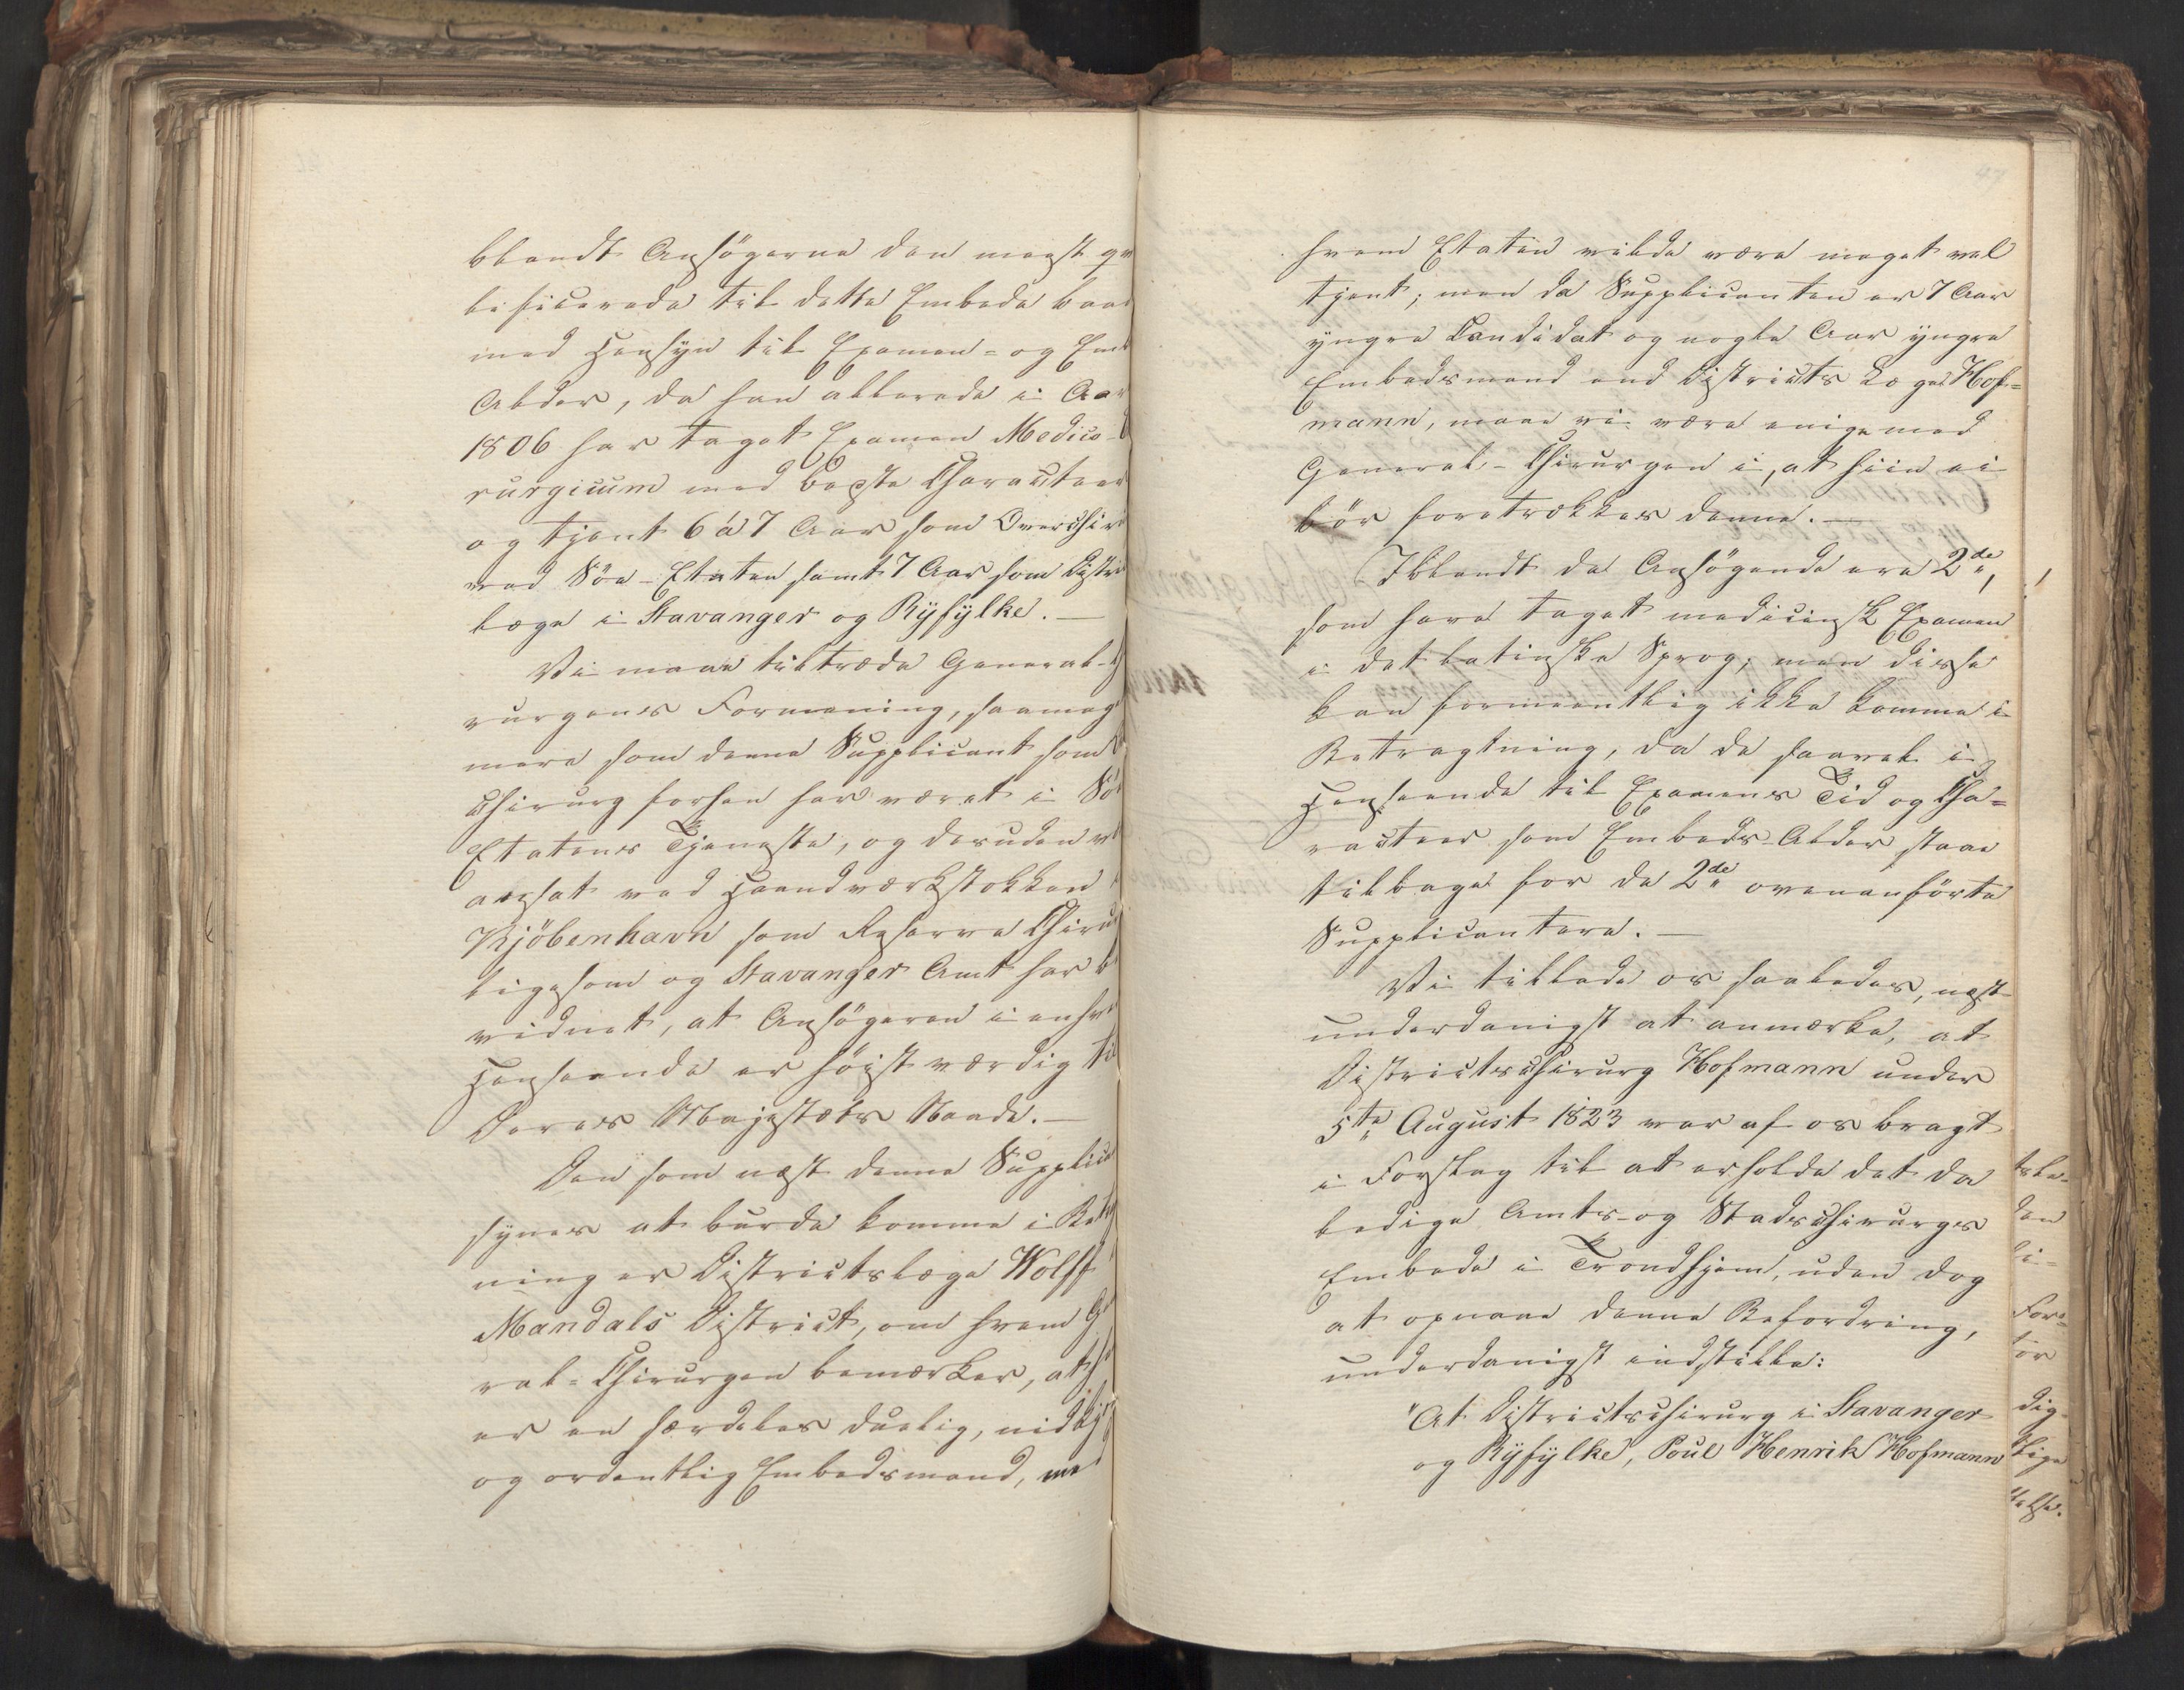 blandt Ansögerne den meest qva
lificerede til dette Embede baad
med Hensyn til Examen- og Emb
Alder, da han allerede i Aar
1806 har taget Examen Medico-
rurgicum med bedste Charakteer
og tjent 6 á 7 Aar som Overchir
ved Söe-Etaten samt 7 Aar som Distr
læge i Stavanger og Ryfylke.—
Vi maae tiltræde General-
rurgens Formening, saameg
mere som denne Supplicant som
chirurg forhen har været i Sö
Etatens Tjeneste, og desuden
ansat ved Haandværkstokken
Kjöbenhavn som Reserve Chiru
ligesom og Stavanger Amt har be
vidnet, at Ansögeren i enhver
Henseende er höist værdig til
Deres Majestæts Naade.—
Den som næst denne Supplica
synes at burde komme i Betr
ning er Districtslæge Wolff
Mandals District, om hvem Ge
ral-Chirurgen bemærker, at h
er en særdeles duelig, nidkjær
og ordentlig Embedsmand, med
hvem Etaten vilde være meget vel
tjent; men da Supplicanten er 7 Aar
yngre Candidat og nogle Aar yngre
Embedsmand end Districts Læge Hof-
mann, maae vi være enige med
General-Chirurgen i, at hiin ei
bör foretrækkes denne.—
Iblandt de Ansögende ere 2de,
som have taget medicinsk Examen
i det latinske Sprog; men disse
kan formeentlig ikke komme i
Betragtning, da de saavel i
Henseende til Examens Tid og Cha-
racteer som Embeds-Alder staae
tilbage for de 2de ovenanförte
Supplicantere.—
Vi tillade os saaledes, næst
underdanigst at anmærke, at
Districtschirurg Hofmann under
5te August 1823 var af os bragt
i Forslag til at erholde det da
ledige Amts- og Stadschirurgs
Embede i Trondhjem, uden dog
at opnaae denne Befordring,
underdanigst indstille:
"At Districtschirurg i Stavanger
og Ryfylke, Poul Henrik Hofmann